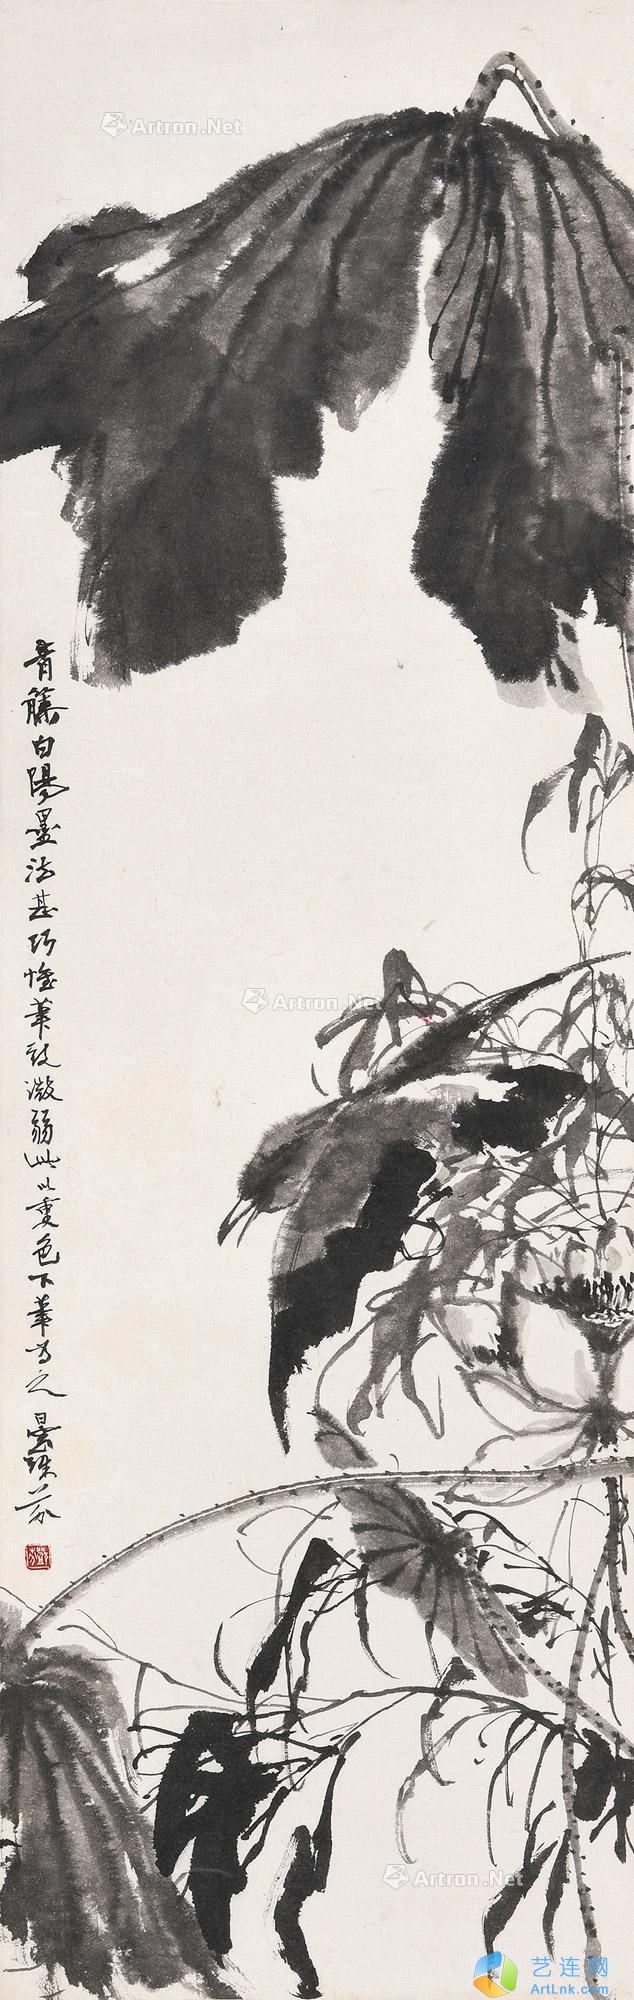 Artron.Net
青藤白陽墨法甚巧惟筆致微弱此以重色下筆為之 曇殊芬
Artron.Net
Artron.Net
艺连网
ArtLnk.com